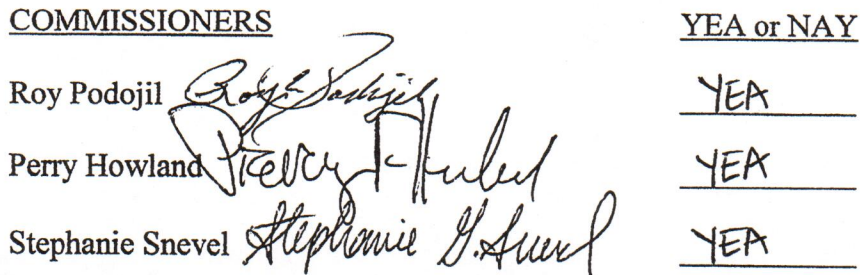 COMMISSIONERS YEA or NAY
Roy Podojil Roy Podojil YEA
Perry Howland Perry YEA
Stephanie Snevel Stephanie G. Snevel YEA